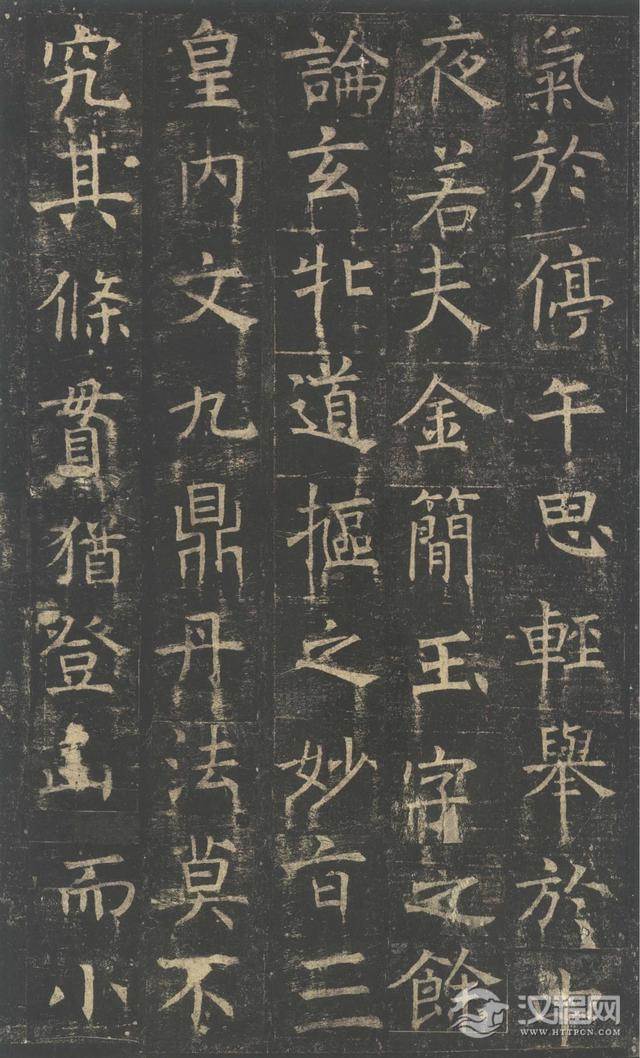 氣於停午思輕舉於中
夜若夫金簡玉字之餘
論玄牝道樞之妙旨三
皇內文九鼎丹法莫不
究其條貫猶登山而小
汉程网
WWW.HTTPCN.COM